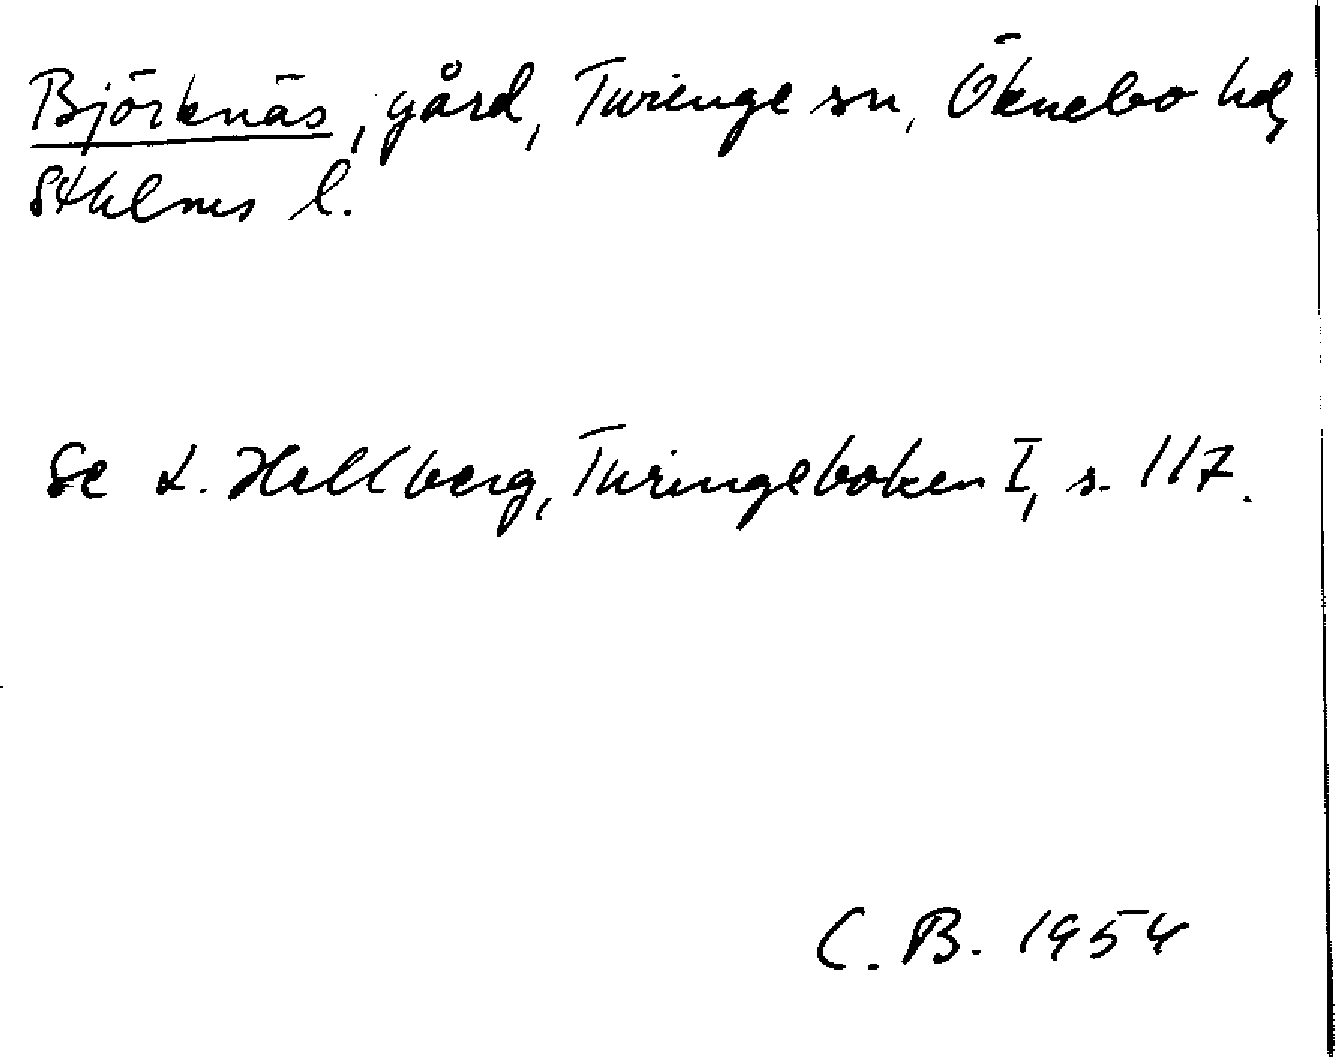 Björknäs, gård, Turinge sn, Öknebo hd,
Sthlms l.
Se L. Hellberg, Turingeboken I, s. 117.
C. B. 1954